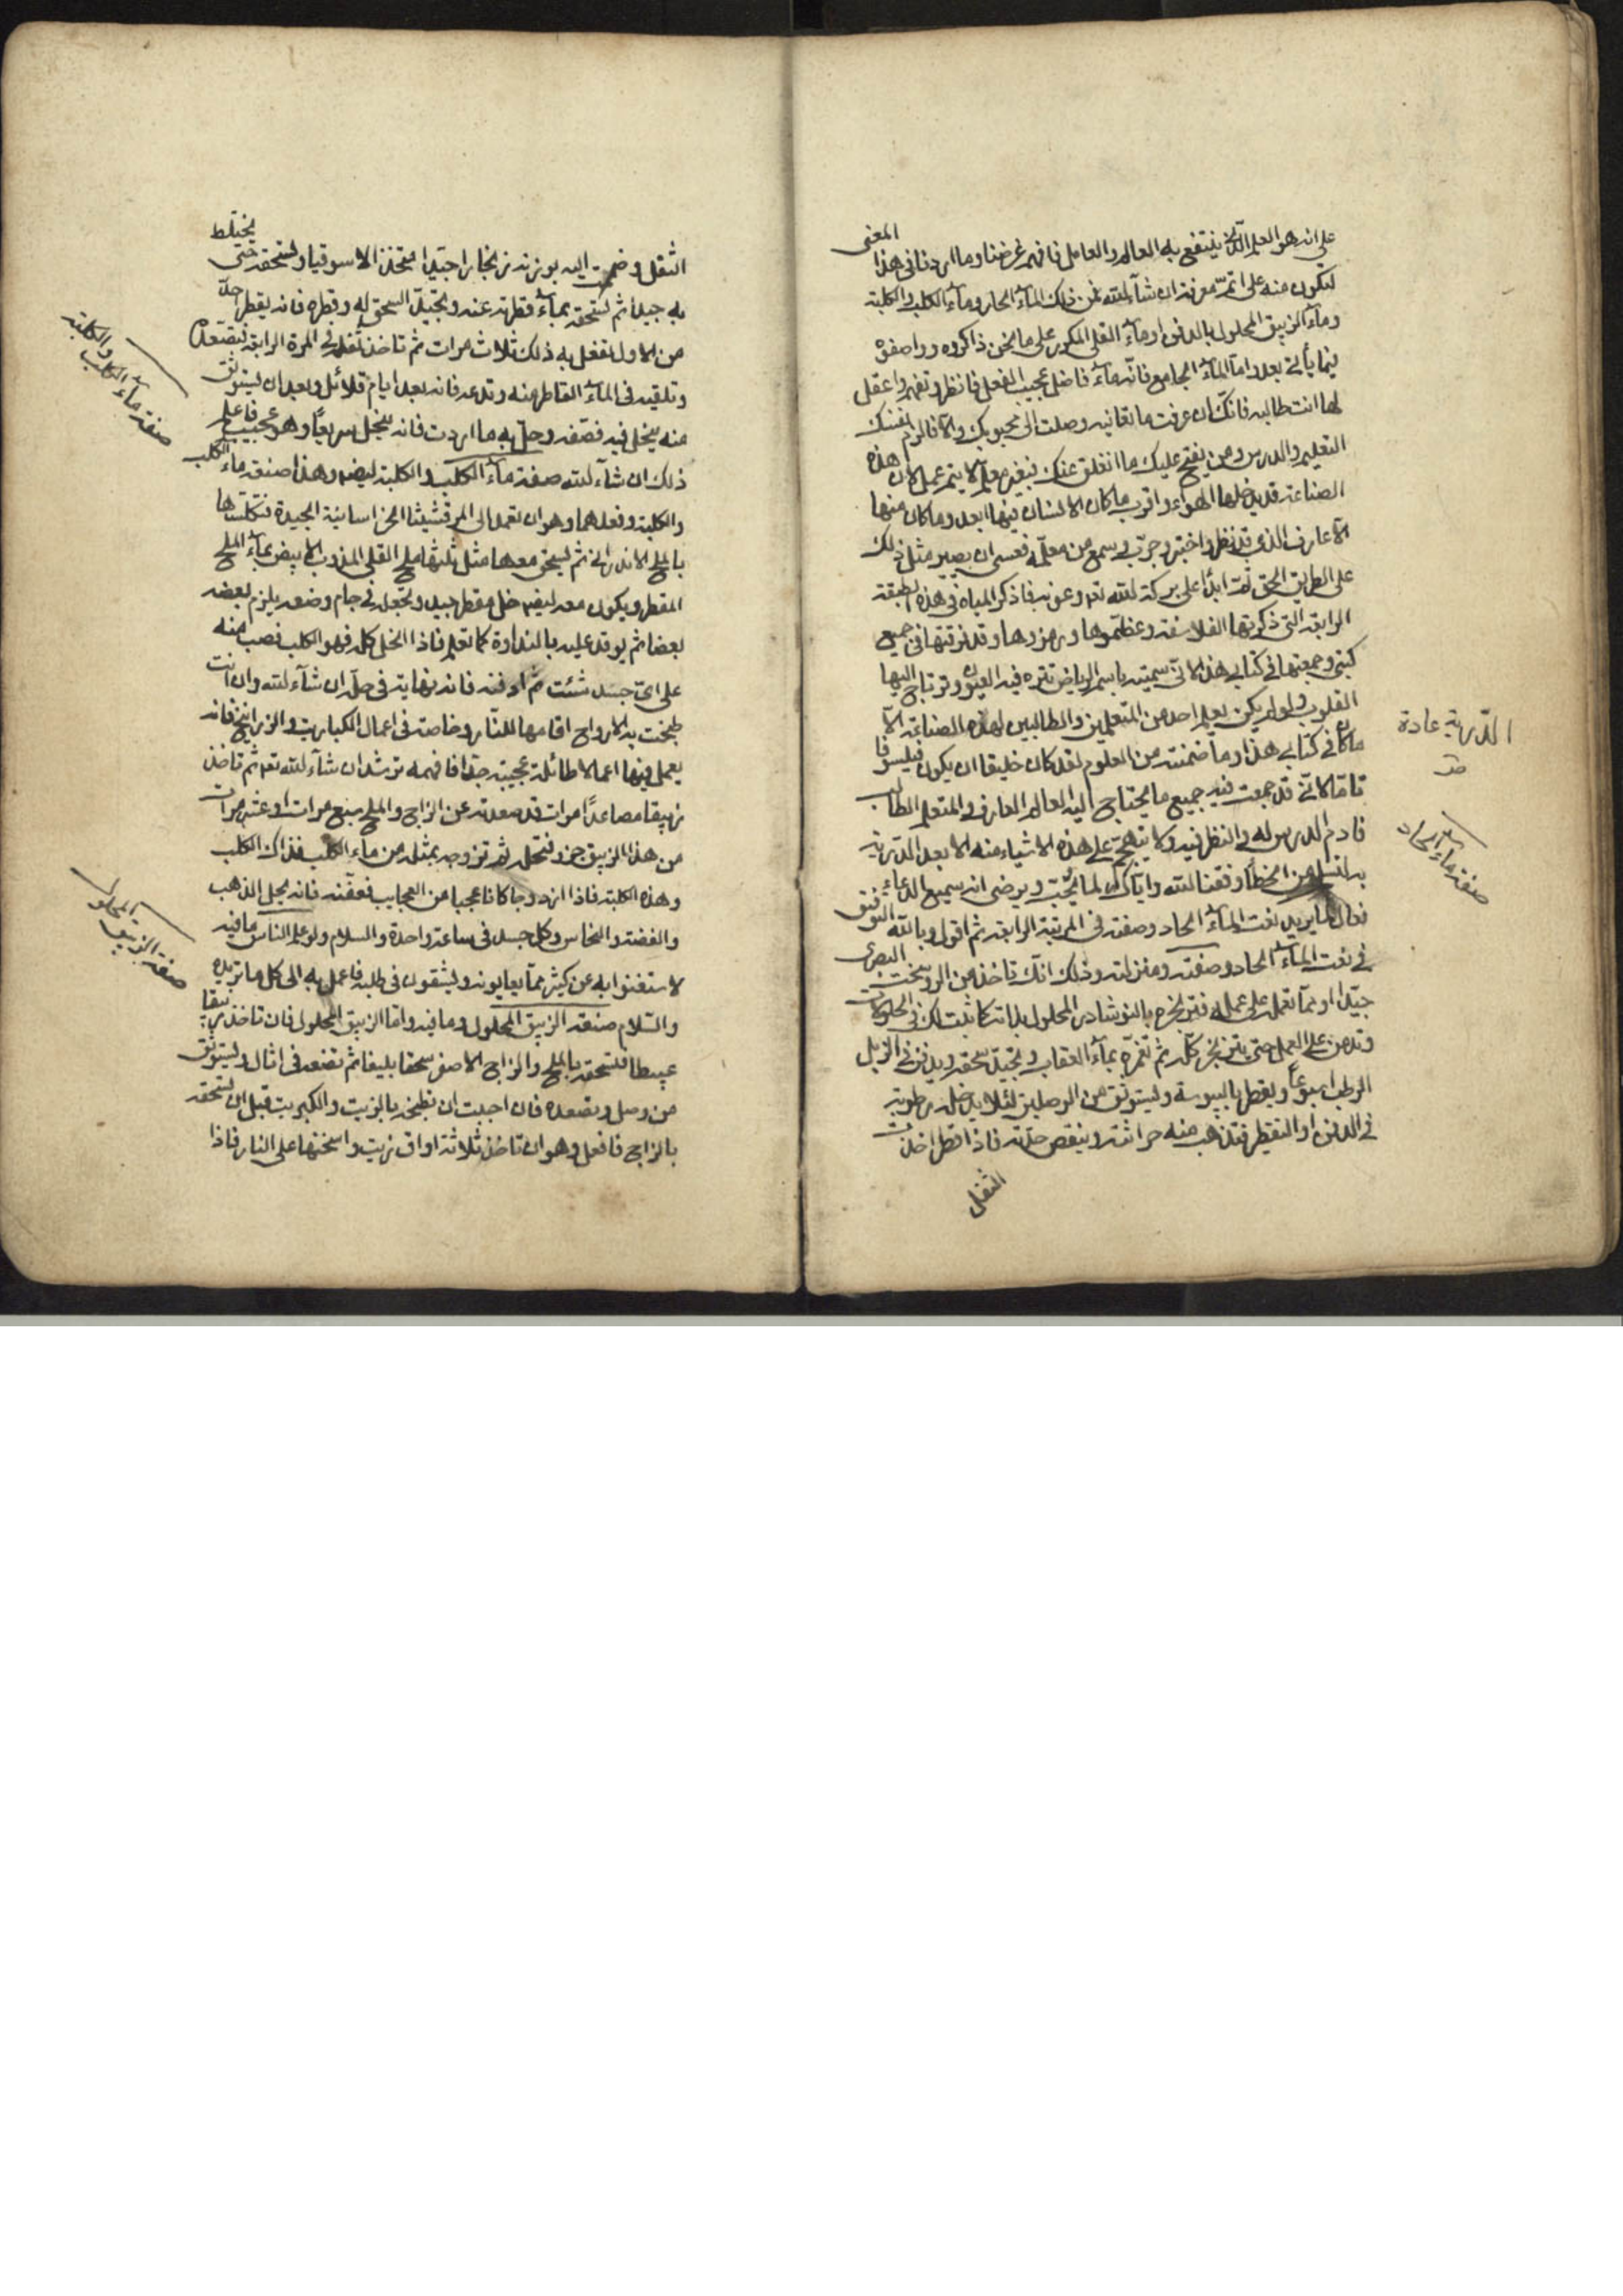 على انه هو العلم الذي ينتفع به العالم والعامل فافهم غرضنا وما اردنا في هذا المعنى
لتكون منه على اتم معرفة ان شآء الله فمن ذلك المآء الحار ومآء الكلب والكلبة
ومآء الزيبق المحلول بالدفن ومآء القلي المكرر على ما نحن ذاكروه وواصفوه
فيما يأتي بعد واما المآء الجامع فانه مآء فاضل عجيب الفعل فانظر وتفهم واعقل
لما انت طالبه فانك ان عرفت ما تعانيه وصلت الى محبوبك والا فالزم نفسك
التعليم والدرس ومن يفتح عليك ما انغلق عنك فبغير معلم لا يتم عمل لان هذه
الصناعة قد يدخلها الهواء واقرب ما كان الانسان فيها ابعد وما كان منها
الا عارف الذي قد نظر واختبر وجرب وسمع من معلمه فعسى ان يصير مثل ذلك
على الطريق الحق ثم ابدأ على بركة الله تعـ وعونه فاذكر المياه في هذه الطبقة
الرابعة التي ذكرتها الفلاسفة وعظموها ورمزوها وقد فرقتها في جميع
كتبي وجمعتها في كتابي هذا لاني سميته باسم الرياض تتنزه فيه العيون وترتاح اليها
القلوب ولو لم يكن يعلم احد من المتعلمين والطالبين لهذه الصناعة الا
ما كان في كتابي هذا وما ضمنته من العلوم لقد كان خليقا ان يكون فيلسوفا
تاما لاني قد جمعت فيه جميع ما يحتاج اليه العالم العارف والمتعلم الطالب
فادم الدرس له والنظر فيه ولا تتهجم على هذه الاشياء منه الا بعد الدربة
به لتسلم من الخطأ وفقنا الله واياك لما يحب ويرضى انه سميع الدعاء
فعال لما يريد نعت المآء الحاد وصفته في المرتبة الرابعة ثم اقول وبالله التوفيق
في نعت المآء الحاد وصفته ومنزلته وذلك انك تاخذ من الروسختج البصري
جيدا او مما تعمل على عمله فتزنجره بالنوشادر المحلول بذاته كما ثبت لك في المحلولات
وتدمن على العمل حتى يتزنجر كله ثم تغمره بمآء العقاب وتجيد سحقه ويدفن في الزبل
الرطب اسبوعاً ويقطر باليبوسة وليستوثق من الوصلين لئلا يدخله رطوبة
في الدفن او التقطير فتذهب منه حرافته وينقص حدته فاذا قطر اخذت
الثفل
الدربة عادة
صفة ماء الحاد
الثفل وضممت اليه بوزنه زنجارا جيدا متخذ الاسوقيا ولتسحقه حتى يختلط
به جيدا ثم تسحقه بمآء قطرته عنه وتجيد السحق له وقطره فانه يقطر احد
من الاول افعل به ذلك ثلاث مرات ثم تاخذ ثفله في المرة الرابعة فتصعده
وتلقيه في المآء القاطر منه وتدعه فانه بعد ايام قلائل وبعد ان يستوثق
منه ينحل فيه فصفه وحل به ما اردت فانه ينحل سريعاً وهو عجيب فاعلم
ذلك ان شآء الله صفة مآء الكلب والكلبة ايضا وهذا صنعة مآء الكلب
والكلبة وفعلهما وهو ان تعمد الى المرقشيثا الخراسانية الجيدة فتكلسها
بالملح الاندراني ثم يسحق معها مثل ثلثها ملح القلي المذوب الابيض بمآء الملح
المقطر ويكون معه ايضا خل مقطر جيد وتجعله في جام وضعه يلزم بعضه
بعضا ثم يوقد عليه بالنداوة كما تعلم فاذا انحل كله فهو الكلب فصب منه
على اي جسد شئت ثم ادفنه فانه نهاية في حله ان شآء الله وان انت
طبخت به الارواح اقامها للنار وخاصة في اعمال الكباريت والزرانيخ فانه
يعمل فيها اعمالا طائلة عجيبة جدا فافهمه ترشد ان شآء الله تعـ ثم تاخذ
زيبقا مصاعدًا مرات قد صعدته عن الزاج والملح سبع مرات او عشر مرات
من هذا الزيبق جزو فتحله ثم تزوجه بمثله من ماء الكلب فذاك الكلب
وهذه الكلبة فاذا ازدوجا كانا عجبا من العجايب فعفنه فانه يحل الذهب
والفضة والنحاس وكل جسد في ساعة واحدة والسلام ولو علم الناس ما فيه
لاستغنوا به عن كثير مما يعايونه ويشقون في طلبه فاعمل به الى كل ما تريده
والسلام صنعة الزيبق المحلول وما فيه واما الزيبق المحلول فان تاخذ زيبقا
عبيطا فتسحقه بالملح والزاج الاصفر سحقا بليغا ثم تضعه في اثال وليستوثق
من وصل ويصعده فان احببت ان تطبخه بالزيت والكبريت قبل ان تسحقه
بالزاج فافعل وهو ان تاخذ ثلاثة اواق زيت واسخنها على النار فاذا
صنعة مآء الكلب والكلبة
صنعة الزيبق المحلول